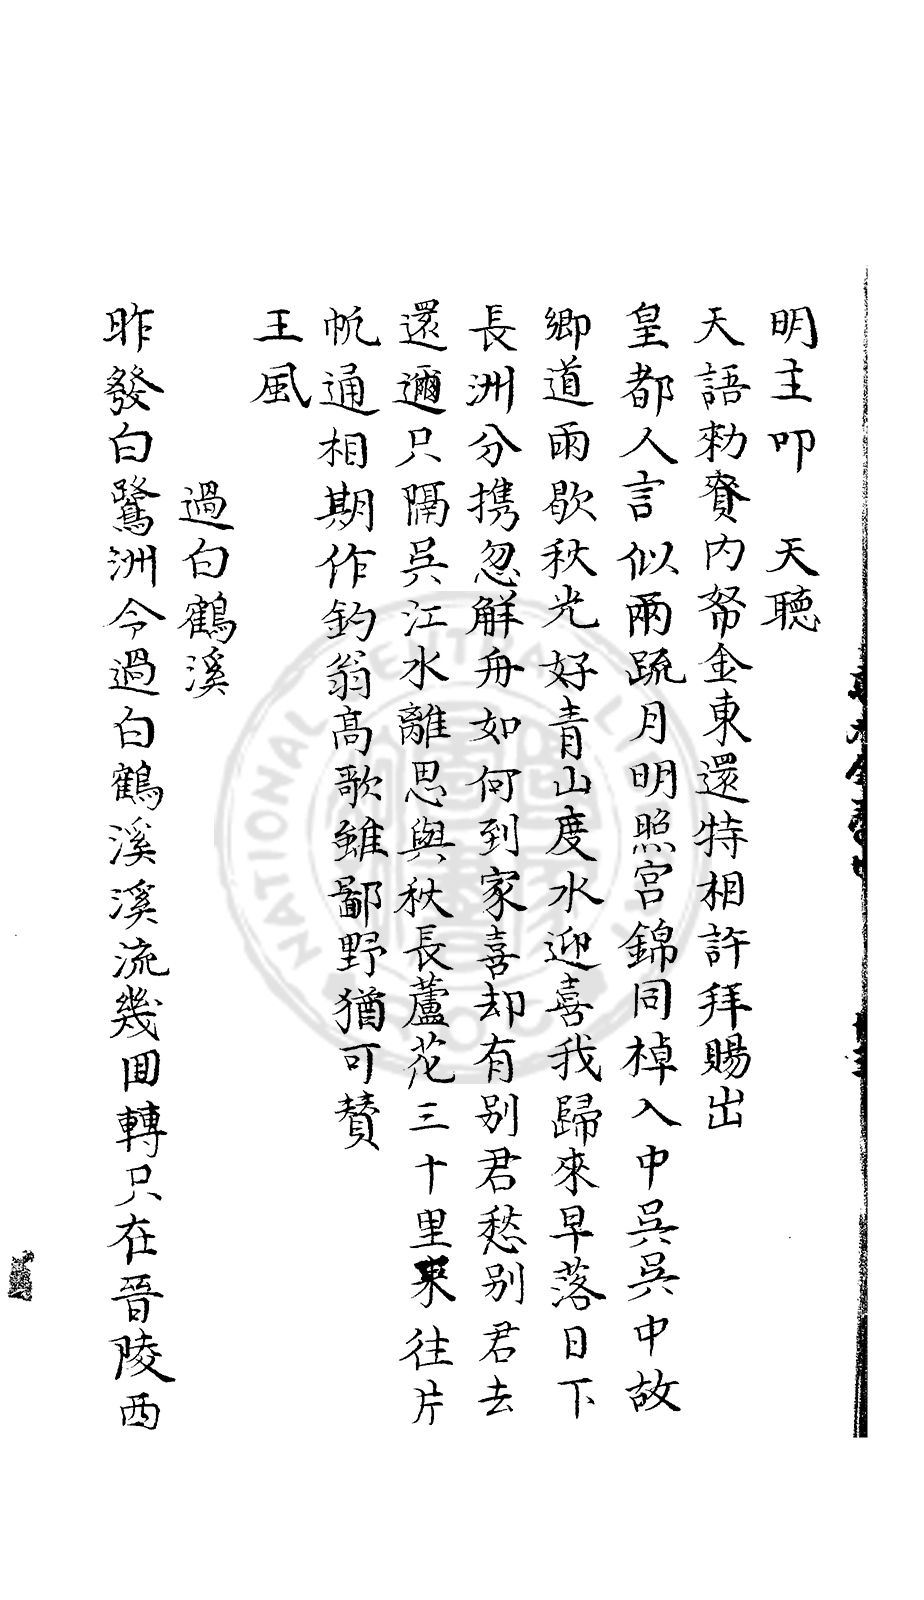 明主叩　天聽
天語勑賚内帑金東還特相許拜賜出
皇都人言似兩疏月明照宮錦同棹入中吳吳中故
鄉道雨歇秋光好青山度水迎喜我歸來早落日下
長洲分携忽解舟如何到家喜却有别君愁别君去
還邇只隔吳江水離思與秋長蘆花三十里東往片
帆通相期作釣翁高歌雖鄙野猶可賛
王風
過白鶴溪
昨發白鷺洲今過白鶴溪溪流幾囬轉只在晉陵西
NATIONAL CENTRAL LIBRARY